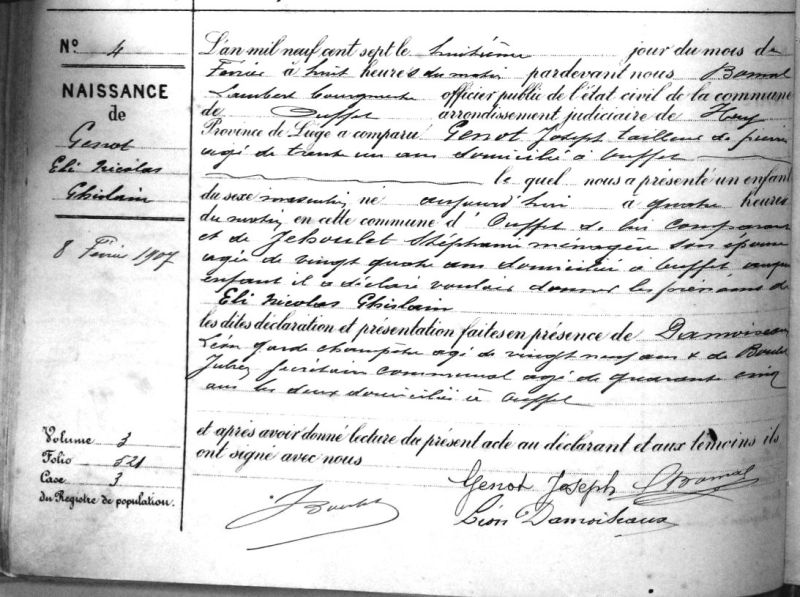 N° 4
NAISSANCE
de
Genot
Eli Nicolas
Ghislain
8 Février 1907
Volume 3
Folio 521
Case 3
du Registre de population.
L'an mil neuf cent sept le huitième jour du mois de
Février à huit heures du matin pardevant nous Bomal
Lambert bourgmestre officier public de l'état civil de la commune
de Ouffet arrondissement judiciaire de Huy
Province de Liége a comparu Genot Joseph tailleur de pierres
agé de trente un ans domicilié à Ouffet
le quel nous a présenté un enfant
du sexe masculin né aujourd'hui à quatre heures
du matin en cette commune d'Ouffet de lui comparant
et de Jehoulet Stéphanie ménagère son épouse
agée de vingt quatre ans domiciliée à Ouffet auquel
enfant il a déclaré vouloir donner les prénoms de
Eli Nicolas Ghislain
les dites déclaration et présentation faites en présence de Damoiseau
Léon garde champêtre agé de vingt neuf ans & de Boulet
Jules secrétaire communal agé de quarante cinq
ans les deux domiciliés à Ouffet
et après avoir donné lecture du présent acte au déclarant et aux témoins ils
ont signé avec nous
Genot Joseph LBomal
JBoulet Léon Damoiseaux